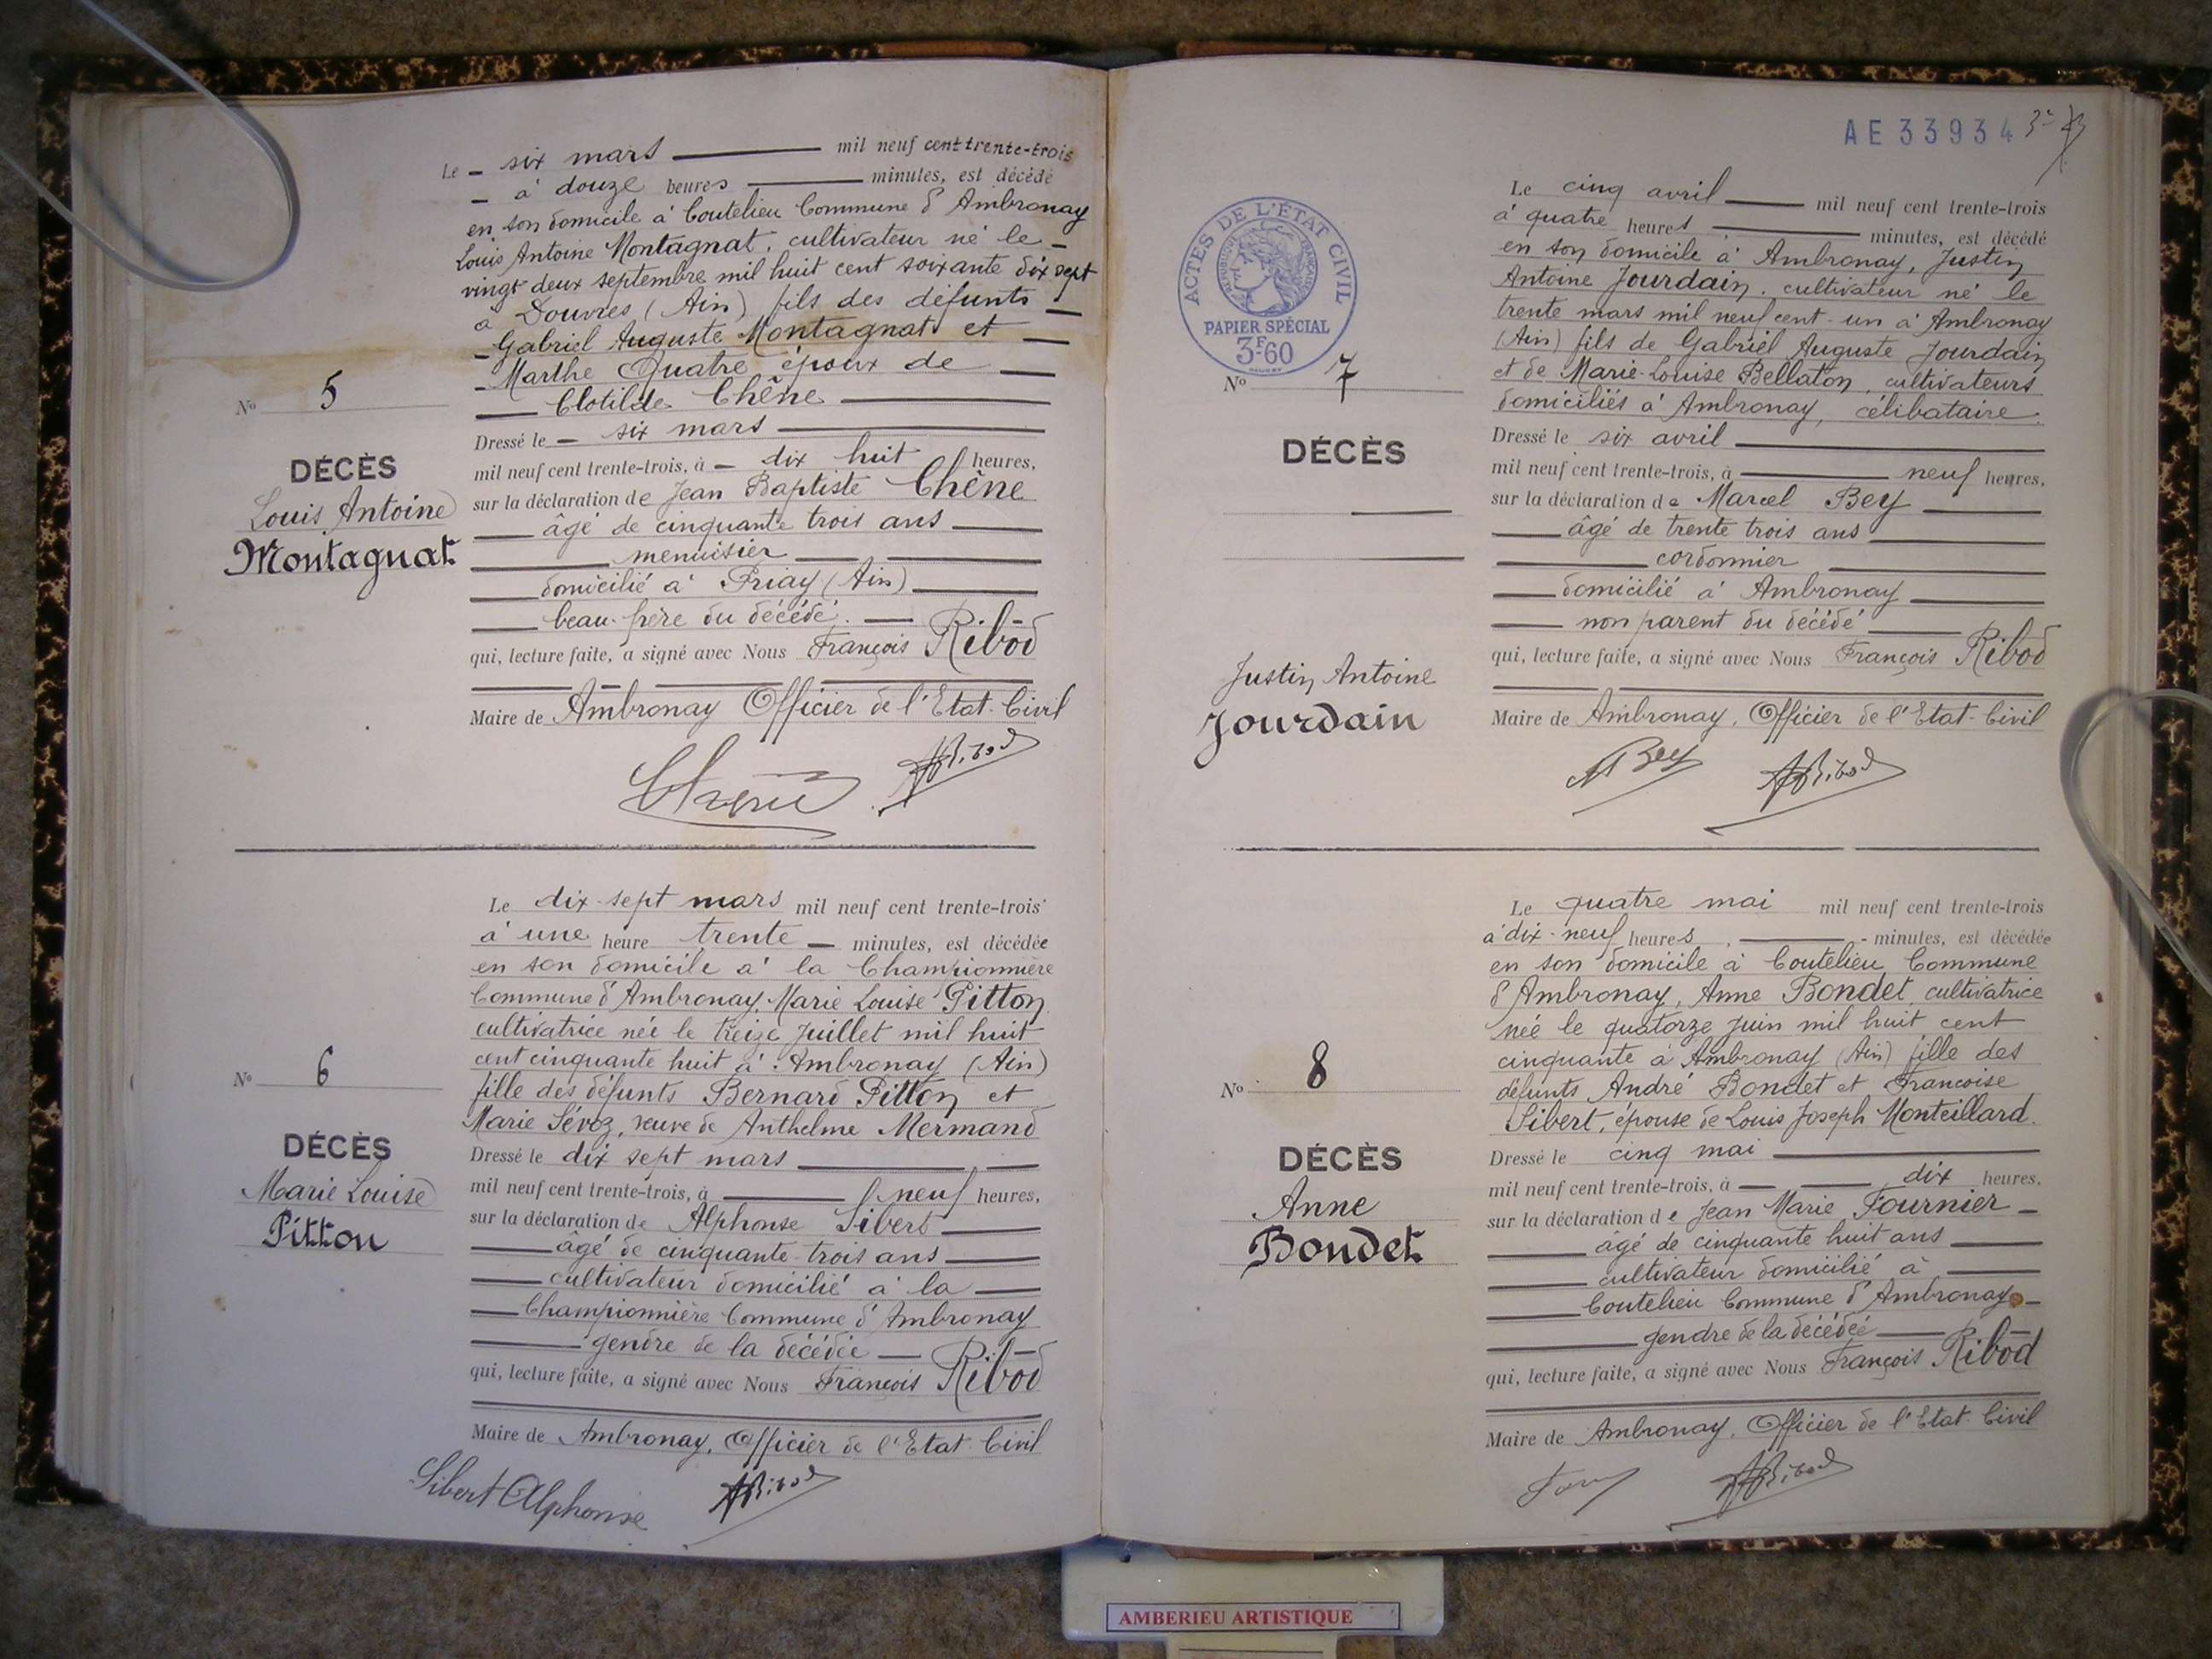 Le six mars mil neuf cent trente-trois
à douze heures minutes, est décédé
en son domicile à Coutelieu Commune d'Ambronay
Louis Antoine Montagnat, cultivateur né le
vingt deux septembre mil huit cent soixante dix sept
à Douvres (Ain) fils des défunts
Gabriel Auguste Montagnat et
Marthe Quatre époux de
Clotilde Chêne
N° 5
DÉCÈS
Louis Antoine
Montagnat
Dressé le six mars
mil neuf cent trente-trois, à dix huit heures,
sur la déclaration de Jean Baptiste Chêne
âgé de cinquante trois ans
menuisier
domicilié à Priay (Ain)
beau-frère du décédé.
qui, lecture faite, a signé avec Nous François Ribod
Maire de Ambronay Officier de l'Etat-Civil
Chêne
Ribod
Le dix-sept mars mil neuf cent trente-trois
à une heure trente minutes, est décédée
en son domicile à la Championnière
Commune d'Ambronay, Marie Louise Pitton
cultivatrice née le treize Juillet mil huit
cent cinquante huit à Ambronay (Ain)
fille des défunts Bernard Pitton et
Marie Sévoz, veuve de Anthelme Mermand
N° 6
DÉCÈS
Marie Louise
Pitton
Dressé le dix sept mars
mil neuf cent trente-trois, à neuf heures,
sur la déclaration de Alphonse Sibert
âgé de cinquante-trois ans
cultivateur domicilié à la
Championnière Commune d'Ambronay
gendre de la décédée
qui, lecture faite, a signé avec Nous François Ribod
Maire de Ambronay, Officier de l'Etat-Civil
Sibert Alphonse
Ribod
AE 33934
ACTES DE L'ÉTAT CIVIL
RÉPUBLIQUE FRANÇAISE
PAPIER SPÉCIAL
3F60
Le cinq avril mil neuf cent trente-trois
à quatre heures minutes, est décédé
en son domicile à Ambronay, Justin
Antoine Jourdain, cultivateur né le
trente mars mil neuf cent-un à Ambronay
(Ain) fils de Gabriel Auguste Jourdain
et de Marie-Louise Bellaton, cultivateurs
domiciliés à Ambronay, célibataire.
N° 7
DÉCÈS
Justin Antoine
Jourdain
Dressé le six avril
mil neuf cent trente-trois, à neuf heures,
sur la déclaration de Marcel Bey
âgé de trente trois ans
cordonnier
domicilié à Ambronay
non parent du décédé
qui, lecture faite, a signé avec Nous François Ribod
Maire de Ambronay, Officier de l'Etat-Civil
M Bey
Ribod
Le quatre mai mil neuf cent trente-trois
à dix-neuf heures minutes, est décédée
en son domicile à Coutelieu Commune
d'Ambronay, Anne Bondet, cultivatrice
née le quatorze juin mil huit cent
cinquante à Ambronay (Ain) fille des
défunts André Bondet et Françoise
Sibert, épouse de Louis Joseph Monteillard.
N° 8
DÉCÈS
Anne
Bondet
Dressé le cinq mai
mil neuf cent trente-trois, à dix heures,
sur la déclaration de Jean Marie Fournier
âgé de cinquante huit ans
cultivateur domicilié à
Coutelieu Commune d'Ambronay
gendre de la décédée
qui, lecture faite, a signé avec Nous François Ribod
Maire de Ambronay, Officier de l'Etat-Civil
Ribod
AMBERIEU ARTISTIQUE